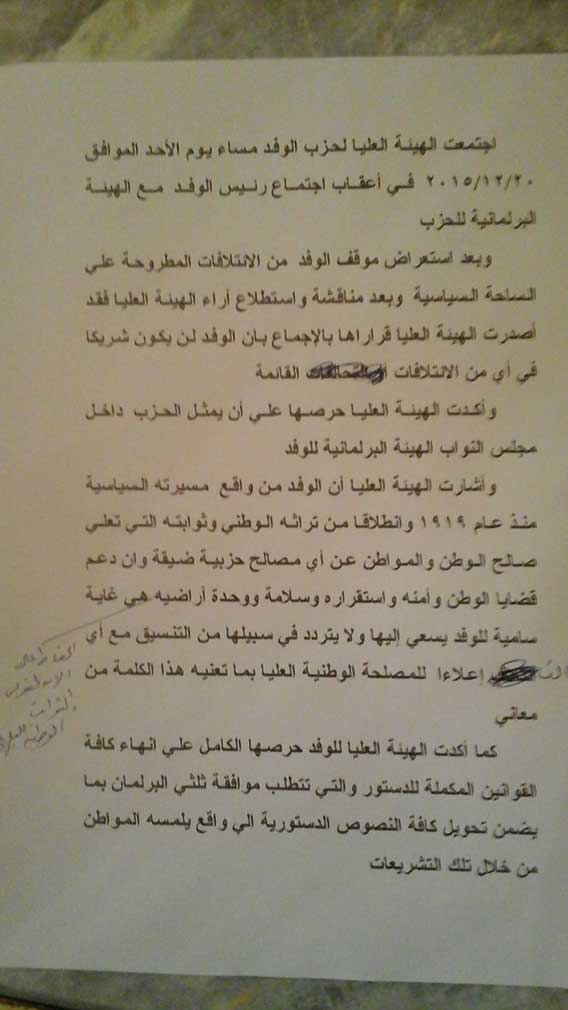 اجتمعت الهيئة العليا لحزب الوفد مساء يوم الأحد الموافق
٢٠١٥/١٢/٢٠ في أعقاب اجتماع رئيس الوفد مع الهيئة
البرلمانية للحزب
وبعد استعراض موقف الوفد من الائتلافات المطروحة علي
الساحة السياسية وبعد مناقشة واستطلاع أراء الهيئة العليا فقد
أصدرت الهيئة العليا قراراها بالإجماع بان الوفد لن يكون شريكا
في أي من الائتلافات القائمة
وأكدت الهيئة العليا حرصها علي أن يمثل الحزب داخل
مجلس النواب الهيئة البرلمانية للوفد
وأشارت الهيئة العليا أن الوفد من واقع مسيرته السياسية
منذ عام ١٩١٩ وانطلاقا من تراثه الوطني وثوابته التي تعلي
صالح الوطن والمواطن عن أي مصالح حزبية ضيقة وان دعم
قضايا الوطن وأمنه واستقراره وسلامة ووحدة أراضيه هي غاية
سامية للوفد يسعي إليها ولا يتردد في سبيلها من التنسيق مع أي
إعلاءا للمصلحة الوطنية العليا بما تعنيه هذا الكلمة من
معاني
كما أكدت الهيئة العليا للوفد حرصها الكامل علي انهاء كافة
القوانين المكملة للدستور والتي تتطلب موافقة ثلثي البرلمان بما
يضمن تحويل كافة النصوص الدستورية الي واقع يلمسه المواطن
من خلال تلك التشريعات